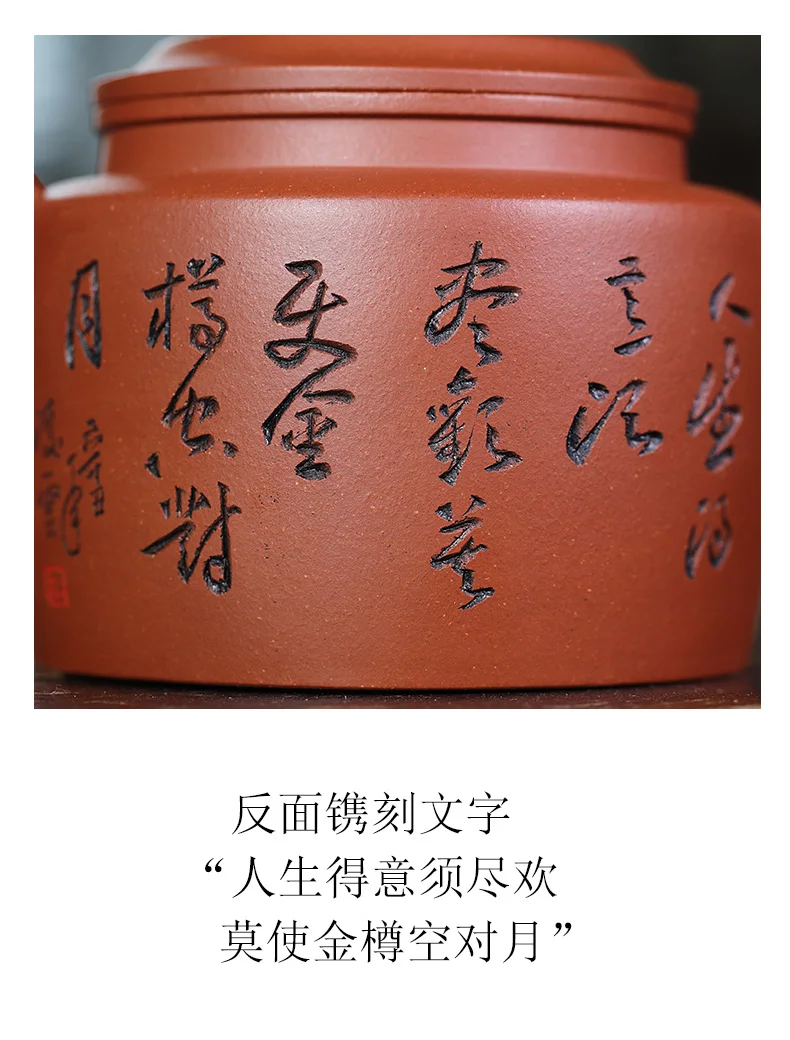 人生得
意须
盡歡莫
使金
樽空對
月
反面镌刻文字
“人生得意须尽欢
莫使金樽空对月”